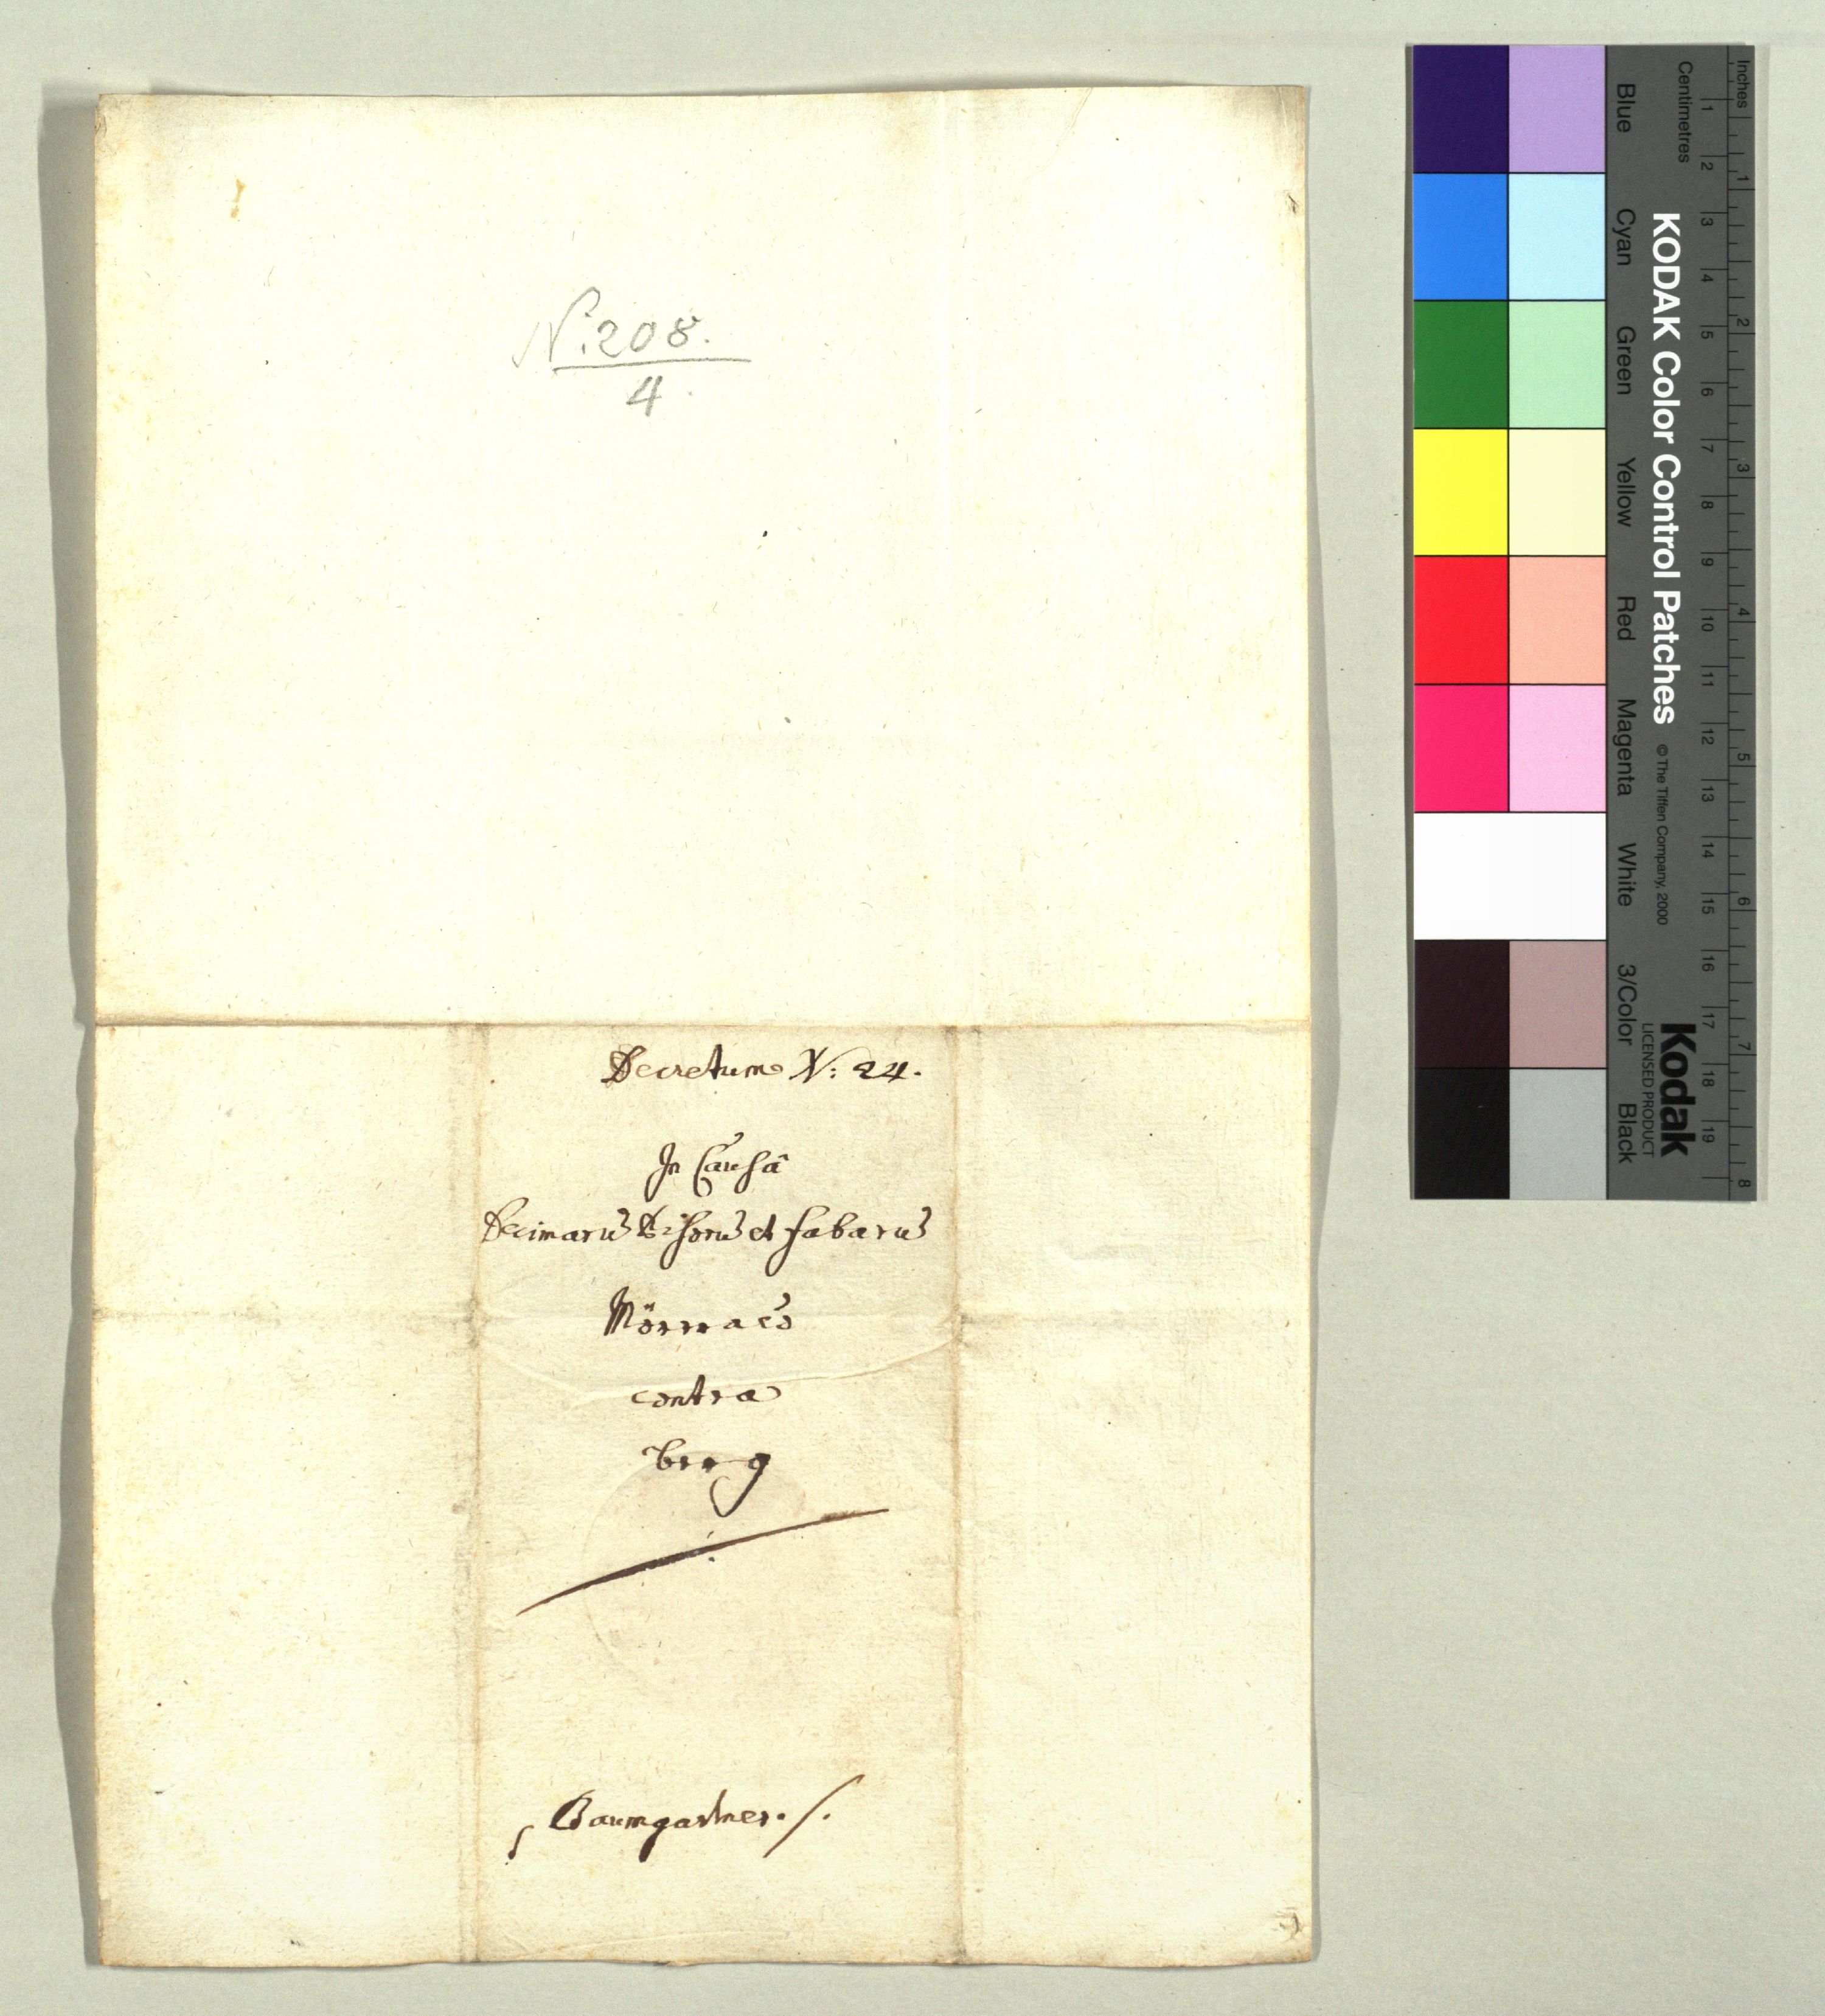 N. 208.
4.
Decretum N: 24.
In Causâ
Decimarũ et fabarũ
contra
Berg
Baumgartner ./.
Inches
Centimetres
1 2 3 4 5 6 7 8 9 10 11 12 13 14 15 16 17 18 19
1 2 3 4 5 6 7 8
KODAK Color Control Patches © The Tiffen Company, 2000
Kodak
LICENSED PRODUCT
Blue Cyan Green Yellow Red Magenta White 3/Color Black